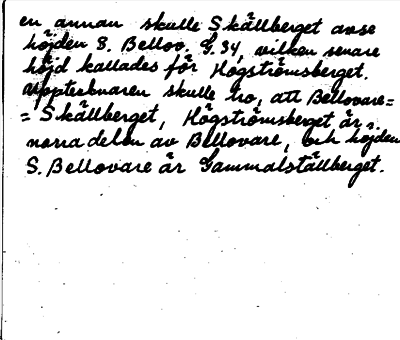 en annan skulle Skällberget avse
höjden S. Bellov. G. 34, vilken senare
höjd kallades för Högströmsberget.
Upptecknaren skulle tro, att Bellovare=
= Skällberget, Högströmsberget är
norra delen av Bellovare, och höjden
S. Bellovare är Gammalställberget.